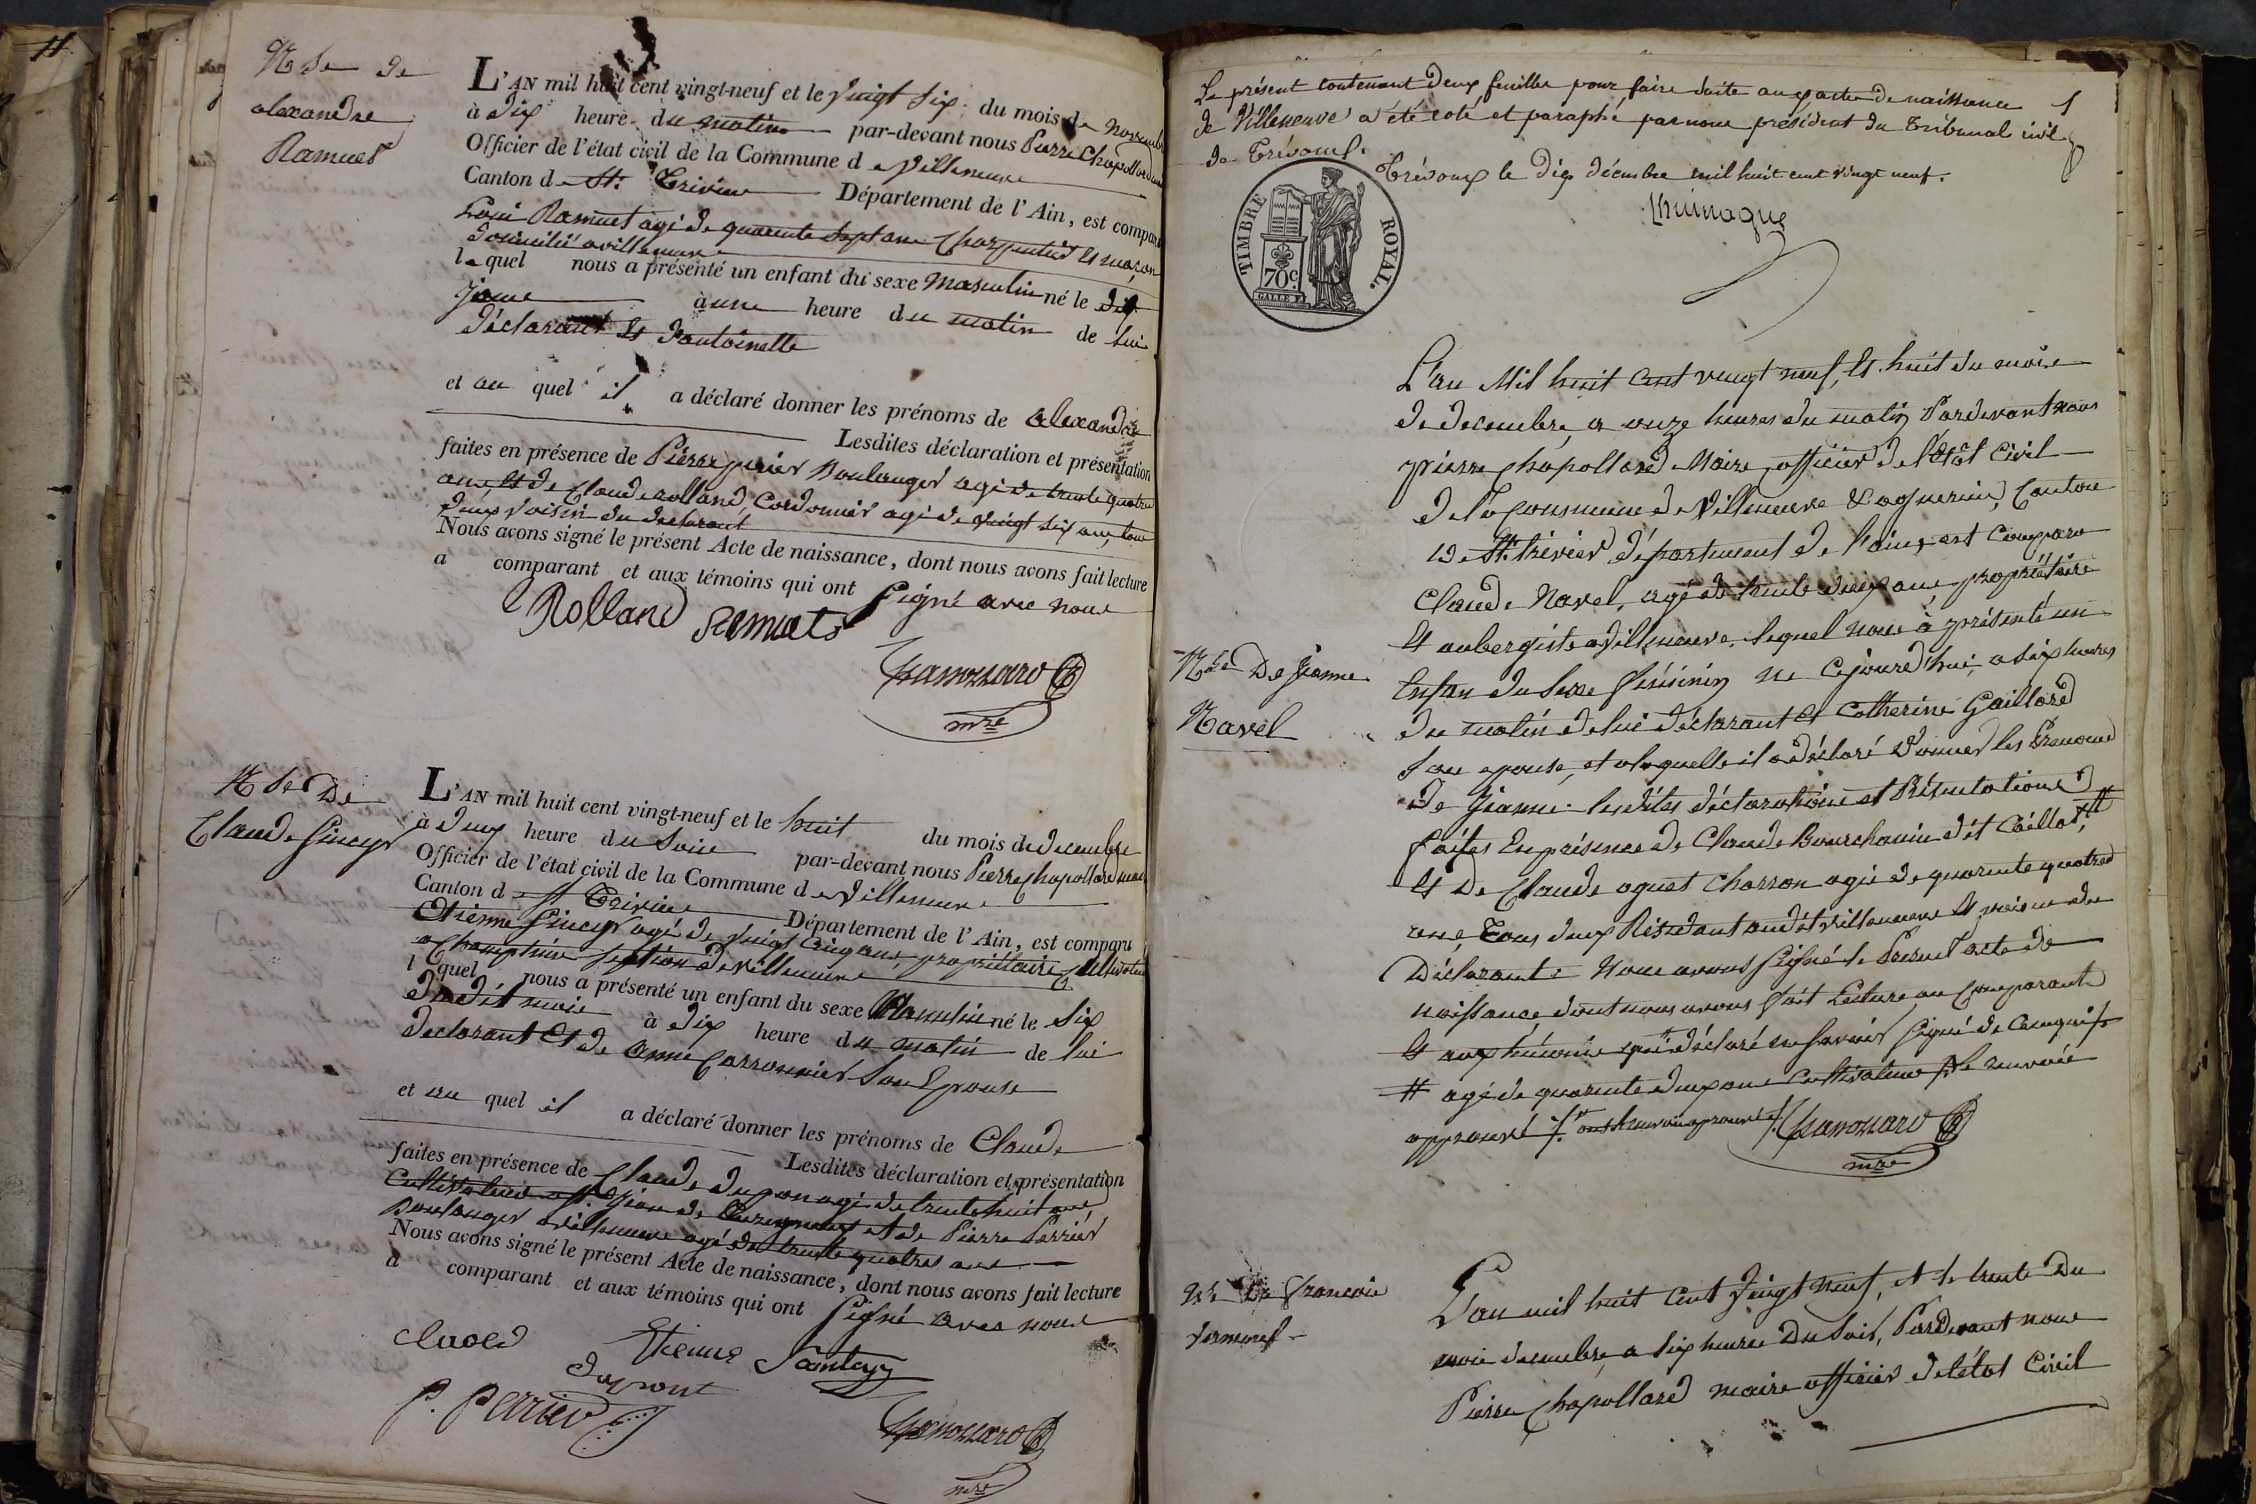 11
Nce de
alexandre
Ramuet
L'AN mil huit cent vingt-neuf et le vingt six du mois de novembre
à dix heure du matin par-devant nous Pierre Chapollard
Officier de l'état civil de la Commune de Villeneuve
Canton de St. Trivier Département de l'Ain, est comparu
Louis Ramuet agé de quarente sept ans Charpentier et maçon
domicilié a villeneuve
lequel nous a présenté un enfant du sexe masculin né le dit
jour à une heure du matin de lui
déclarant et
et au quel il a déclaré donner les prénoms de alexandre
Lesdites déclaration et présentation
faites en présence de Pierre perier Boulanger agé de trente quatre
ans et de Claude rolland, Cordonnier agé de vingt six ans, tous
deux voisin du declarant
Nous avons signé le présent Acte de naissance, dont nous avons fait lecture
a comparant et aux témoins qui ont signé avec nous
Rolland Remuets
Chapollard
mre
Nce De
Claude Sincyr
L'AN mil huit cent vingt-neuf et le huit du mois de decembre
à deux heure du Soir par-devant nous Pierre Chapollard maire
Officier de l'état civil de la Commune de Villeneuve
Canton d St Trivier Département de l'Ain, est comparu
Etienne Sincyr agé de vingt cinq ans, propriétaire Cultivateur
section de villeneuve
l quel nous a présenté un enfant du sexe Masculin né le six
du dit mois à dix heure du matin de lui
declarant et de anne Carronnier Son Epouse
et au quel il a déclaré donner les prénoms de Claude
Lesdites déclaration et présentation
faites en présence de Claude Dupon agé de trente huit ans
Cultivateur a St. Jean de et de Pierre Perrier
Boulanger a villeneuve agé de trente quatres ans
Nous avons signé le présent Acte de naissance, dont nous avons fait lecture
a comparant et aux témoins qui ont signé avec nous
Etienne
dupont
P. Perrier
Chapollard
mre
Le présent contenant deux feuilles pour faire suite aux actes de naissance
de Villeneuve a été coté et paraphé par nous président du tribunal civil
de Trévoux.
Trévoux le dix décembre mil huit cent vingt neuf.
TIMBRE ROYAL.
70c.
L'an Mil huit Cent vingt neuf, et huit du mois
de decembre, a onze heures du matin Pardevant nous
pierre Chapollard Maire officier de l'état Civil
de la Commune de Villeneuve & agnerins, Canton
de St. trivier département de l'ain, est Comparu
Claude Navel, agé de trente deux ans, propriétaire
et aubergiste a villeneuve. lequel nous à présenté un
Enfan du sexe féminin ne Cejourd'hui, a six heures
du matin de lui déclarant et Catherine Gaillard
son epouse, et a laquelle il a déclaré Donner les Prenoms
De Jeanne. lesdites déclarations et Présentations
faites En présence de Claude Bourchanin dit Caillot, #
et De Claude aguet Charron agé de quarente quatre
ans, Tous deux Résidant audit villeneuve et voisin du
Déclarant. Nous avons signé le Present acte de
naissance dont nous avons fait Lecture au Comparant
et aux témoins qui déclaré ne savoir signé de Cenquis
# agé de quarente deux ans Cultivateur
approuvé Chapollard
mre
Nce De Jeanne
Navel
Nce De françois
L'an mil huit Cent Vingt neuf, et le trente Du
mois decembre a six heures Du Soir, Pardevant nous
Pierre Chapollard maire officier de l'état Civil